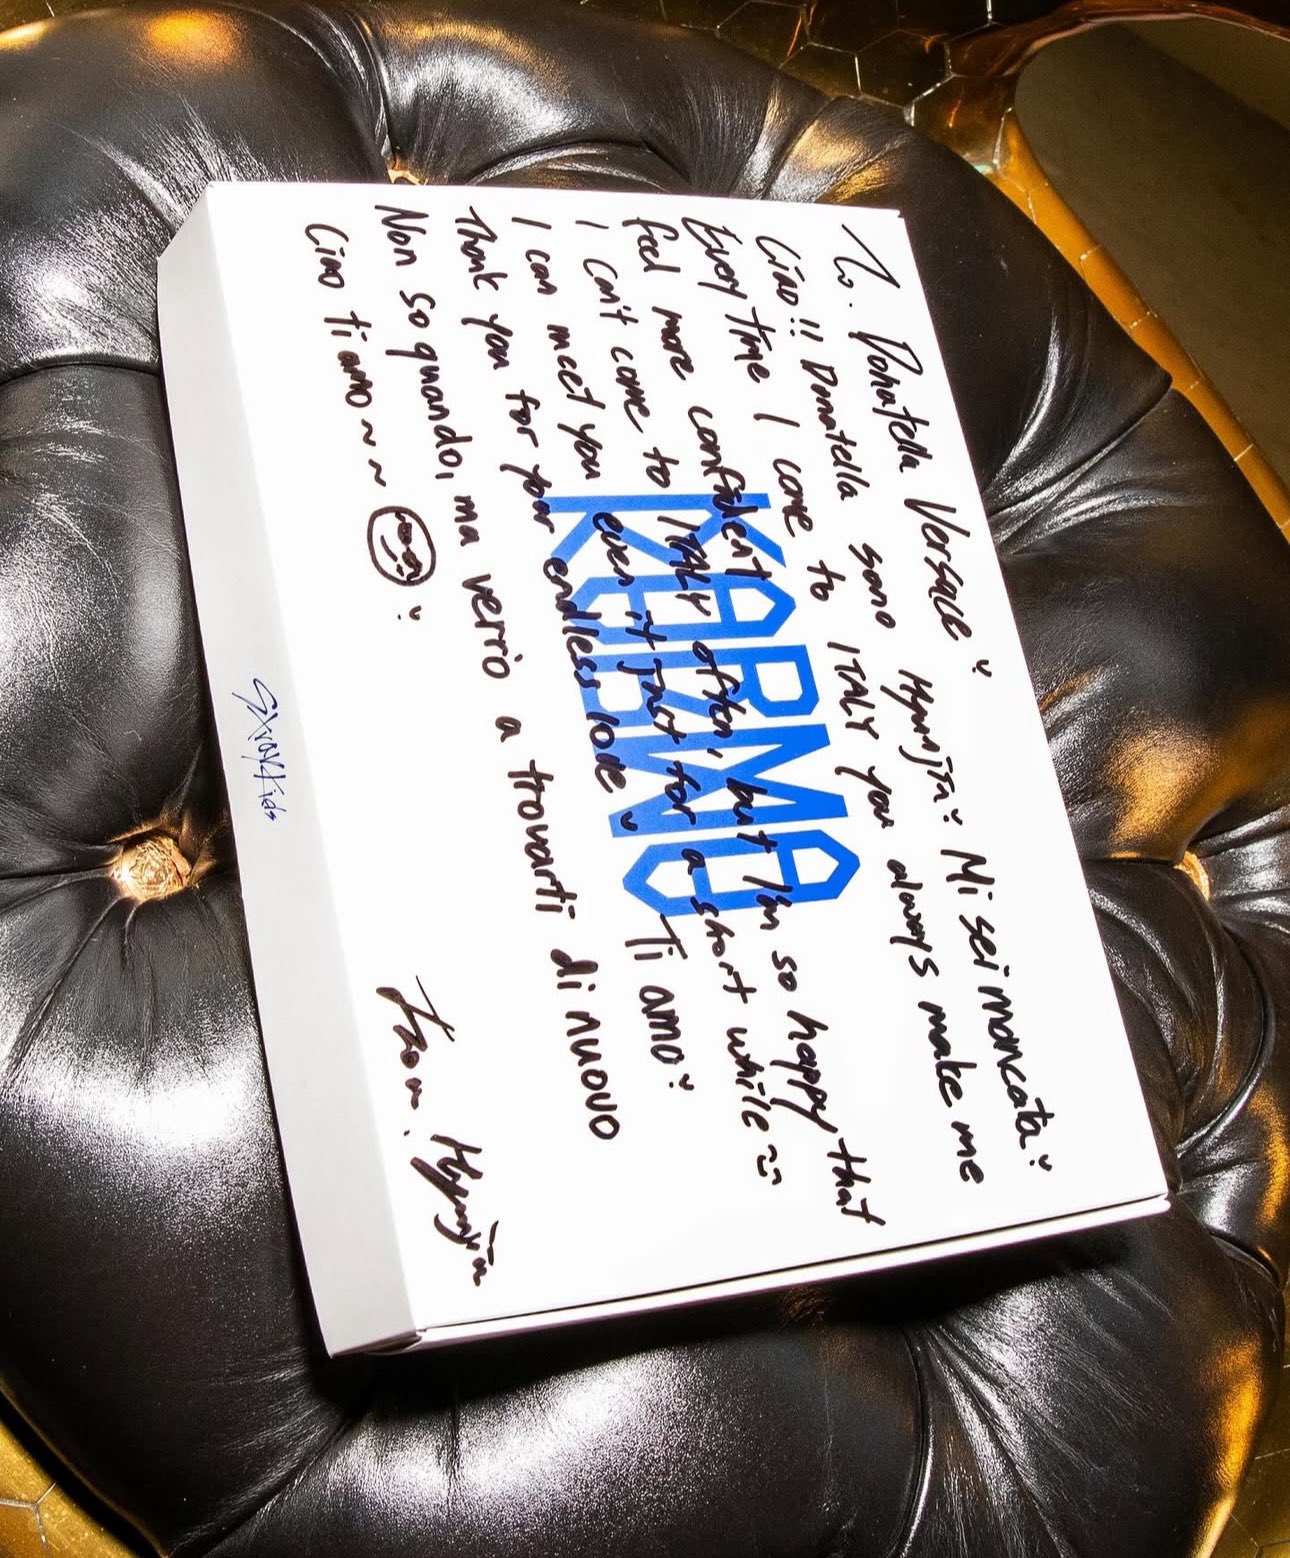 To. Donatella Versace
Ciao!! Donatella sono Hyunjin Mi sei mancata
Every time I come to ITALY you always make me
feel more confident
I can't come to ITALY often, but I'm so happy that
I can meet you even it just for a short while~
Thank you for your endless love Ti amo
Non so quando, ma verrò a trovarti di nuovo
Ciao ti amo~~
From. Hyunjin
KARMA
StrayKids